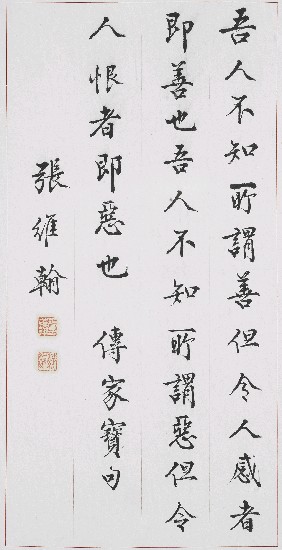 吾人不知所謂善但令人感者
即善也吾人不知所謂惡但令
人恨者即惡也 傳家寶句
張維翰